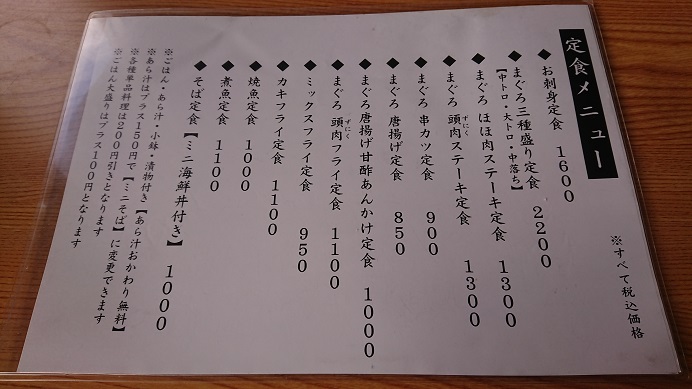 定食メニュー
※すべて税込価格
◆ お刺身定食 1600
◆ まぐろ三種盛り定食 2200
【中トロ・大トロ・中落ち】
◆ まぐろ ほほ肉ステーキ定食 1300
◆ まぐろ 頭肉ステーキ定食 1300
ずにく
◆ まぐろ 串カツ定食 900
◆ まぐろ 唐揚げ定食 850
◆ まぐろ唐揚げ甘酢あんかけ定食 1000
◆ まぐろ 頭肉フライ定食 1100
ずにく
◆ ミックスフライ定食 950
◆ カキフライ定食 1100
◆ 焼魚定食 1000
◆ 煮魚定食 1100
◆ そば定食【ミニ海鮮丼付き】 1000
※ごはん・あら汁・小鉢・漬物付き【あら汁おかわり無料】
※あら汁はプラス150円で【ミニそば】に変更できます
※各種単品料理は200円引きとなります
※ごはん大盛りはプラス100円となります